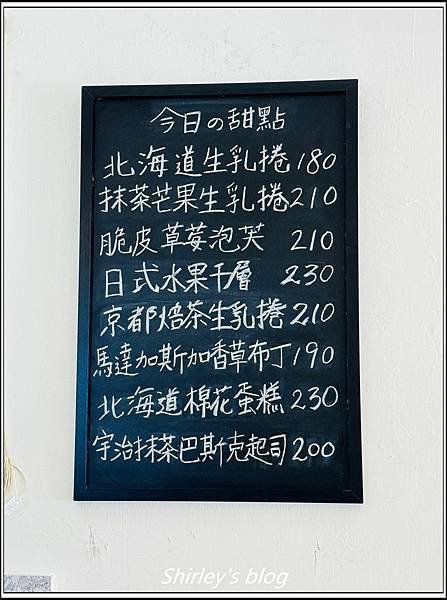 今日の甜點
北海道生乳捲 180
抹茶芒果生乳捲 210
脆皮草莓泡芙 210
日式水果千層 230
京都焙茶生乳捲 210
馬達加斯加香草布丁 190
北海道棉花蛋糕 230
宇治抹茶巴斯克起司 200
Shirley's blog